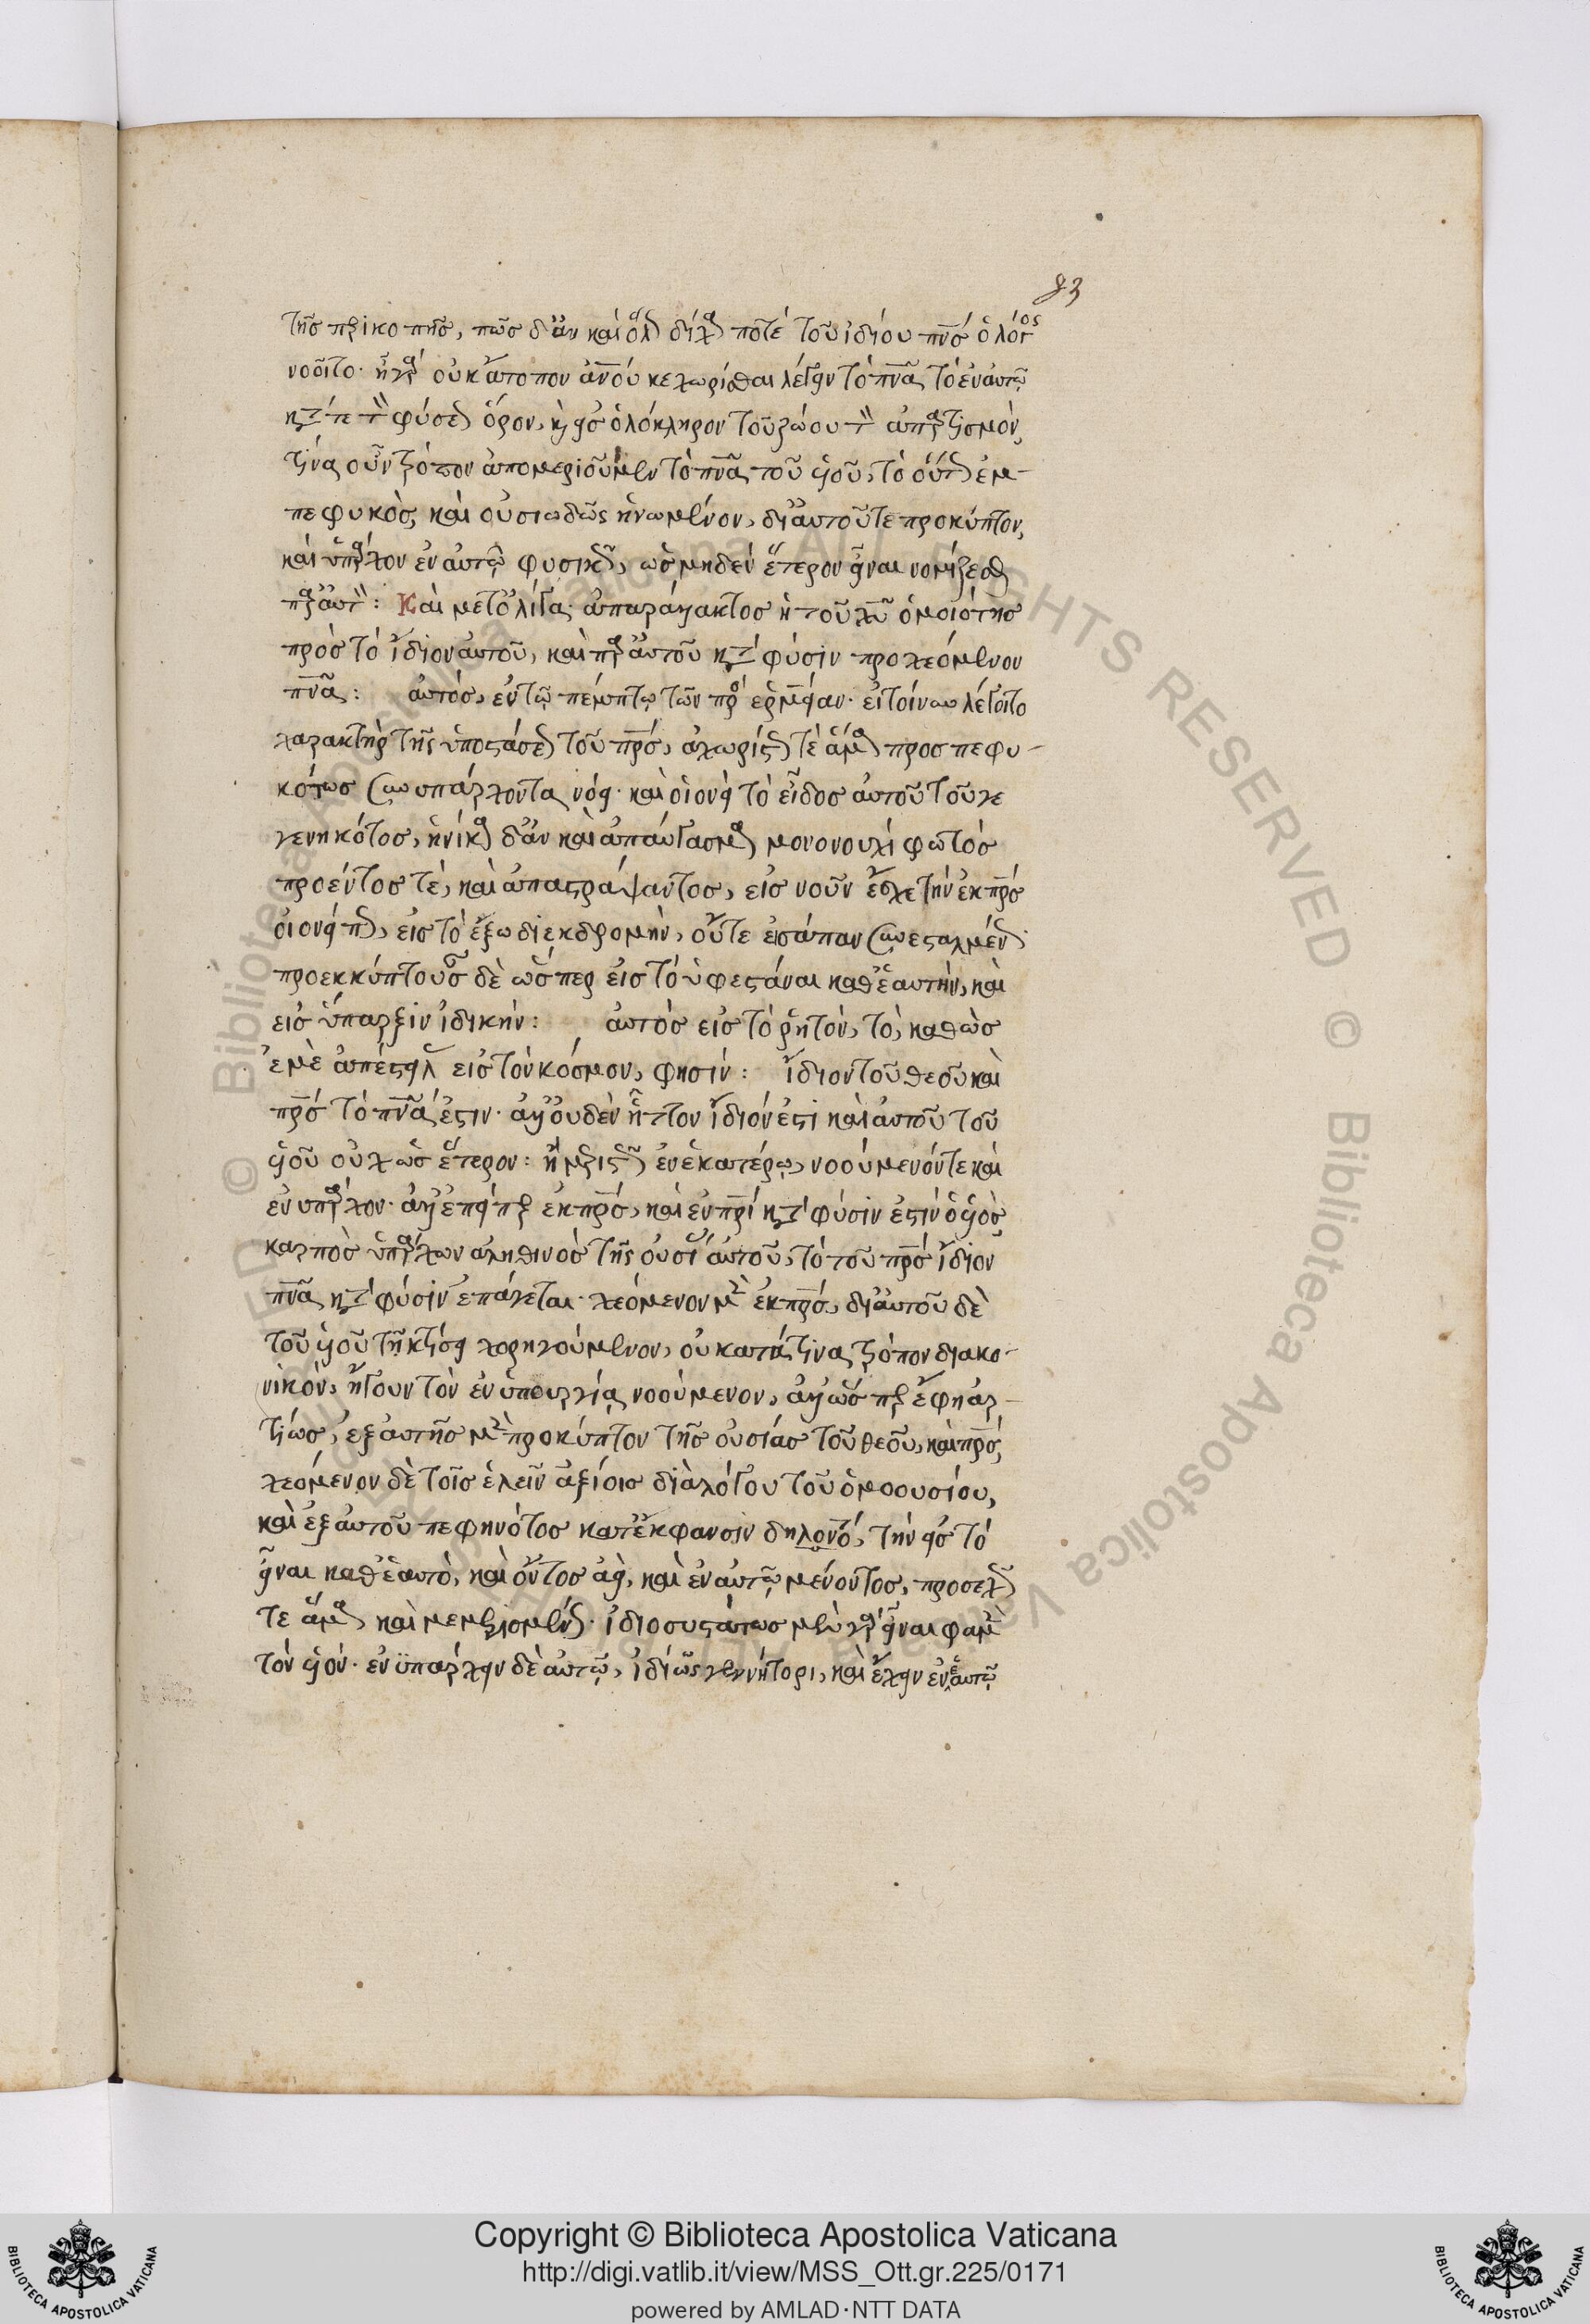 83
τῆς περικοπῆς, πῶς δ' ἂν καὶ ὅλως δίχα ποτὲ τοῦ ἰδίου πνς ὁ λόγος
νοοῖτο· ἢ γὰρ οὐκ ἄτοπον ἀνού κεχωρίσθαι λέγειν τὸ πνα τὸ ἐν αὐτῷ
κατά τε τὸν φύσεως ὅρον, καὶ εἰς ὁλόκληρον τοῦ ζώου τὸν ἀπαρτισμόν,
τίνα οὖν τρόπον ἀπομεριοῦμεν τὸ πνα τοῦ υἱοῦ, τὸ οὕτως ἐμ-
πεφυκὸς, καὶ οὐσιωδῶς ἡνωμένον, δι' αὐτοῦ τε προκύπτον,
καὶ ὑπάρχον ἐν αὐτῷ φυσικῶς, ὡς μηδὲν ἕτερον εἶναι νομίζεσθαι
παρ' αὐτόν: Καὶ μετ' ὀλίγα· ἀπαράλλακτος ἡ τοῦ χυ ὁμοιότης
πρὸς τὸ ἴδιον αὐτοῦ, καὶ παρ' αὐτοῦ κατὰ φύσιν προχεόμενον
πνα: αὐτός, ἐν τῷ πέμπτῳ τῶν πρὸς ἑρμείαν· εἰ τοίνυν λέγοιτο
χαρακτὴρ τῆς ὑποστάσεως τοῦ πρς, ἀχωρίστως τὲ ἅμα προσπεφυ-
κότως συνυπάρχοντα νόει· καὶ οἱονεὶ τὸ εἶδος αὐτοῦ τοῦ γε
γενηκότος, ἡνίκα δ' ἂν καὶ ἀπαύγασμα μονονουχὶ φωτὸς
προέντος τὲ, καὶ ἀπαστράψαντος, εἰς νοῦν ἔσχε τὴν ἐκ πρς
οἱονεί πως, εἰς τὸ ἔξω διεκδρομὴν, οὔτε εἰσάπαν συνεσταλμένως
προεκκύπτουσαν δὲ ὥσπερ εἰς τὸ ὑφεστάναι καθ' ἑαυτὴν, καὶ
εἰς ὕπαρξιν ἰδικήν: αὐτὸς εἰς τὸ ῥητόν, τὸ, καθὼς
ἐμὲ ἀπέστειλας εἰς τὸν κόσμον, φησίν: ἴδιον τοῦ θεοῦ καὶ
πρς τὸ πνα ἐστιν· ἀλλ' οὐδὲν ἧττον ἴδιόν ἐστι καὶ αὐτοῦ τοῦ
υἱοῦ οὐχ ὡς ἕτερον: ἢ μεριστῶς ἐν ἑκατέρῳ, νοούμενόν τε καὶ
ἐνυπάρχον· ἀλλ' ἐπείπερ ἐκ πρς, καὶ ἐν πρι κατὰ φύσιν ἐστὶν ὁ υἱὸς
καρπὸς ὑπάρχων ἀληθινὸς τῆς οὐσίας αὐτοῦ, τὸ τοῦ πρς ἴδιον
πνα κατὰ φύσιν ἐπάγεται· χεόμενον μὲν ἐκ πρς, δι' αὐτοῦ δὲ
τοῦ υἱοῦ τῇ κτίσει χορηγούμενον, οὐ κατά τινα τρόπον διακο-
νικὸν, ἤγουν τὸν ἐν ὑπουργίᾳ νοούμενον, ἀλλ' ὥσπερ ἔφην ἀρ-
τίως, ἐξ αὐτῆς μὲν προκύπτον τῆς οὐσίας τοῦ θεοῦ, καὶ πρς,
χεόμενον δὲ τοῖς ἑλεῖν ἀξίοις διὰ λόγου τοῦ ὁμοουσίου,
καὶ ἐξ αὐτοῦ πεφηνότος κατ' ἔκφανσιν δηλονότι, τὴν εἰς τὸ
εἶναι καθ' ἑαυτὸ, καὶ ὄντος ἀεὶ, καὶ ἐν αὐτῷ μένοντος, προσεχῶς
τε ἅμα καὶ μεμερισμένως· ἰδιοσυστάτως μὲν γὰρ εἶναι φαμὲν
τὸν υἱόν· ἐνυπάρχειν δὲ αὐτῷ, ἰδίως γεννήτορι, καὶ ἔχειν ἐν ἑαυτῷ
© Biblioteca Apostolica Vaticana ALL RIGHTS RESERVED
Copyright © Biblioteca Apostolica Vaticana
http://digi.vatlib.it/view/MSS_Ott.gr.225/0171
powered by AMLAD·NTT DATA
BIBLIOTECA APOSTOLICA VATICANA
BIBLIOTECA APOSTOLICA VATICANA